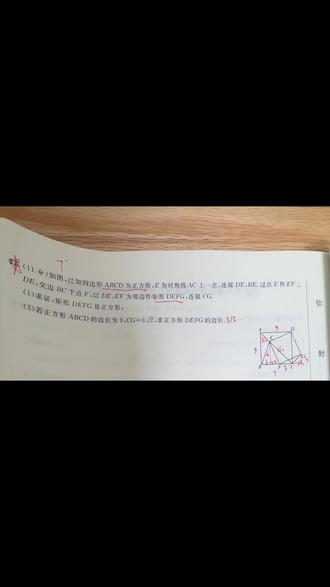 (11分)如图,已知四边形ABCD为正方形,E为对角线AC上一点,连接DE,BE,过点E作EF⊥
DE,交边BC于点F,以DE,EF为邻边作矩形DEFG,连接CG.
(1)求证:矩形DEFG是正方形;
(2)若正方形ABCD的边长为9,CG=3√2,求正方形DEFG的边长.
弥
封
A
9
D
E
9
B
F
3
C
9